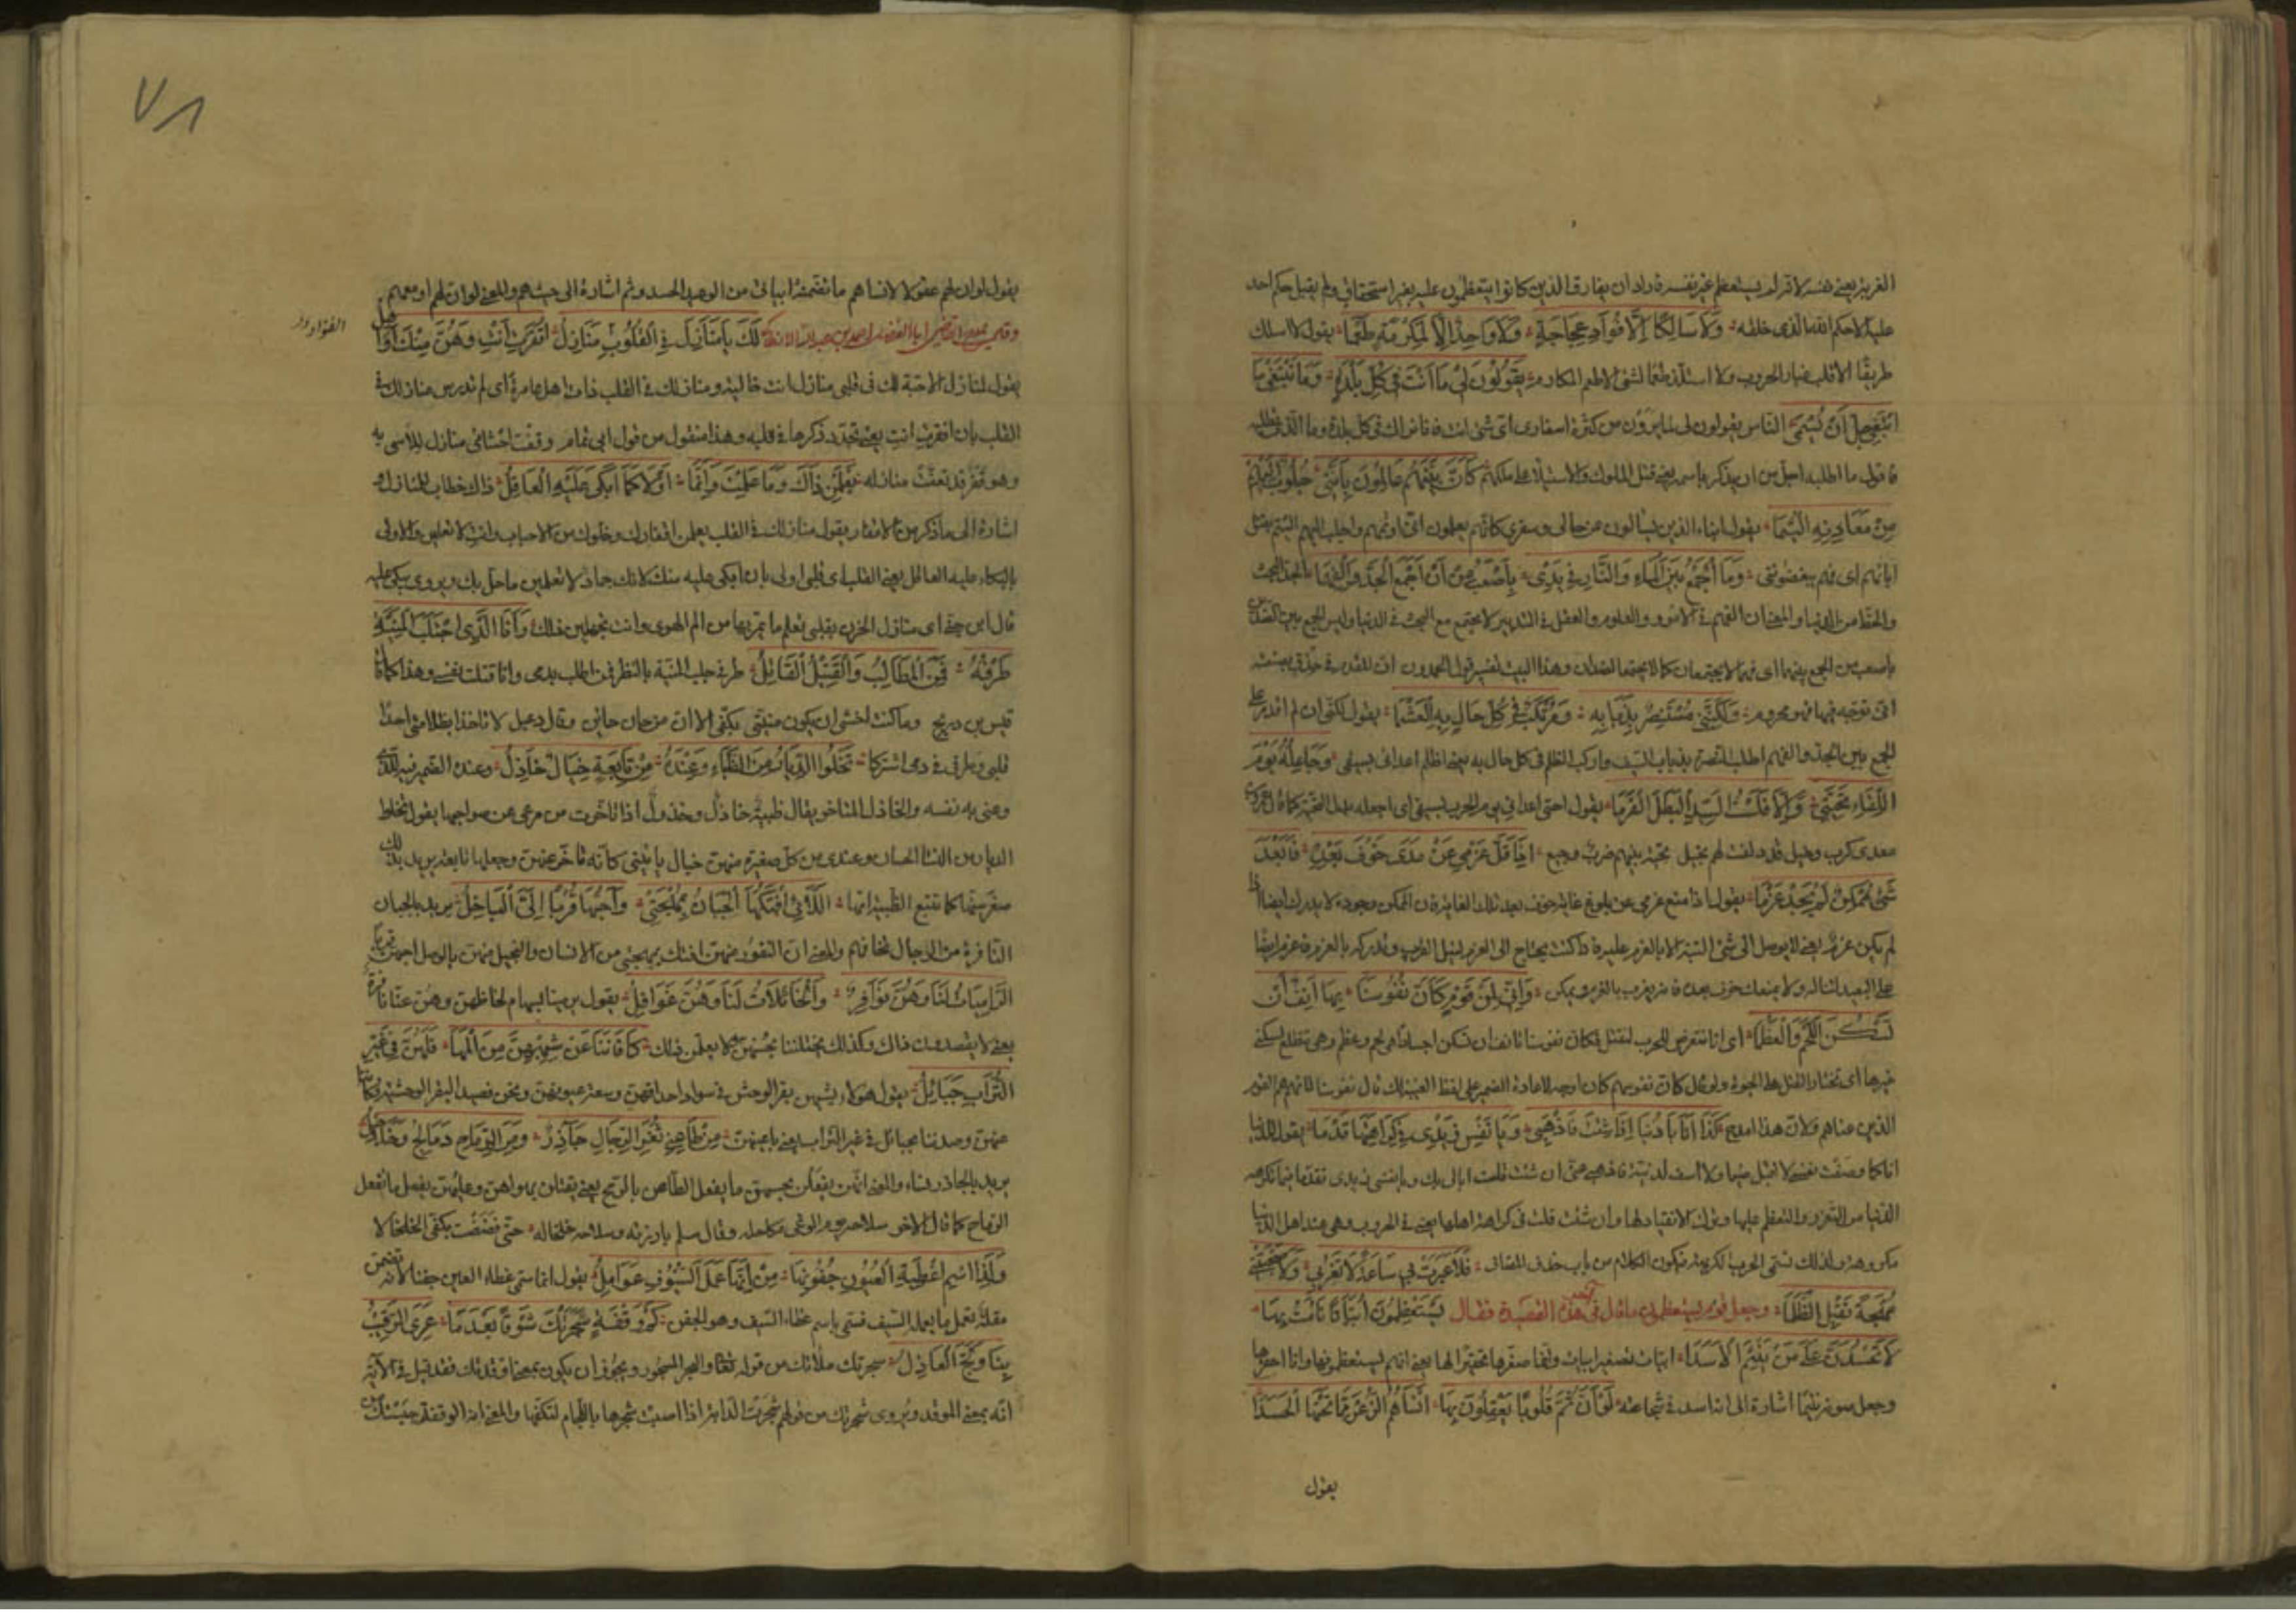 الغريزة يعني هنه لانه لم يستعظم غير نفسه فاراد ان يفارق الذين كانوا يتعظمون عليه بغير استحقاق ولم يقبل حكم احد
عليه الا حكم الله الذي خلقه وَلَا سَالِكًا إِلَّا فُؤَادَ عَجَاجَةٍ وَلَا وَاجِدًا إِلَّا لِمَكْرُمَةٍ طَعْمَا يقول لا اسلك
طريقا الا قلب غبار الحروب ولا استلذ طعما لشئ الا طعم المكارم يَقُولُونَ لِي مَا أَنْتَ فِي كُلِّ بَلْدَةٍ وَمَا تَبْتَغِي مَا
أَبْتَغِي جَلَّ أَنْ يُسْمَى الناس يقولون لي لما يرون من كثرة اسفاري اي شئ انت فانا نراك في كل بلدة وما الذي تطلبه
فاقول ما اطلبه اجل من ان يذكر باسمه يعني قتل الملوك والاستيلا على ملكهم كَأَنَّ بَنِيهِمْ عَالِمُونَ بِأَنَّنِي جَلُوبٌ إِلَيْهِمْ
مِنْ مَعَادِنِهِ الْيُتْمَا يقول ابناء الذين يسألون عن حالي وسفري كانهم يعلمون اني اوتمهم واجلب اليهم اليتم بقتل
ابائهم اي فهم يبغضونني وَمَا الْجَمْعُ بَيْنَ الْمَاءِ وَالنَّارِ فِي يَدِي بِأَصْعَبَ مِنْ أَنْ أَجْمَعَ الْجَدَّ وَالْفَهْمَا الجد البخت
والحظ من الدنيا والمعنى ان الفهم في الامور والعلوم والعقل في التدبير لا يجتمع مع البخت في الدنيا وليس الجمع بين الضدين
باصعب من الجمع بينهما اي فهما لا يجتمعان كما لا يجتمع الضدان وهذا البيت تفسير قول الحمدوي ان المقدم في حذق بصنعته
انى توجه فيها فهو محروم وَلَكِنَّنِي مُسْتَنْصِرٌ بِذُبَابِهِ وَمُرْتَكِبٌ فِي كُلِّ حَالٍ بِهِ الْغَشْمَا يقول لكني ان لم اقدر على
الجمع بين الجد والفهم اطلب النصرة بذباب السيف واركب الظلم في كل حال به يعني اظلم اعدائي بسيفي وَجَاعِلُهُ يَوْمَ
اللِّقَاءِ تَحِيَّتِي وَإِلَّا فَلَسْتُ السَّيِّدَ الْبَطَلَ الْقَرْمَا يقول احيي اعدائي يوم الحرب بسيفي اي اجعله بدل التحية كما قال عمرو بن
معدي كرب وخيل قد دلفت لهم بخيل تحية بينهم ضرب وجيع إِذَا قَلَّ عَزْمِي عَنْ مَدًى خَوْفَ بُعْدِهِ فَأَبْعَدُ
شَيْءٍ مُمْكِنٌ لَمْ يَجِدْ عَزْمَا يقول اذا منع عزمي عن بلوغ غاية خوف بعد تلك الغاية فان الممكن وجوده لا يدرك ايضا اذا
لم يكن عزم يعني لا يوصل الى شئ البتة الا بالعزم عليه فاذا كنت تحتاج الى العزم لنيل القريب وتدركه بالعزم فاعزم ايضا
على البعيد لتناله ولا يمنعك خوف بعده فانه يقرب بالعزم ويمكن وَإِنِّي لَمِنْ قَوْمٍ كَأَنَّ نُفُوسَنَا بِهَا أَنَفٌ أَنْ
تَسْكُنَ اللَّحْمَ وَالْعَظْمَا اي انا نتعرض للحرب لنقتل فكان نفوسنا تانف ان تسكن اجسادا هي لحم وعظم وهي تطلع لسكنى
غيرها اي تختار القتل على الحيوة ولو قال كان نفوسهم كان اوجه لاعادة الضمير على لفظ الغيبة لكنه قال نفوسنا لانهم هم القوم
الذين عناهم ولان هذا امدح كَذَا أَنَا يَا دُنْيَا إِذَا شِئْتِ فَاذْهَبِي وَيَا نَفْسِ زِيدِي فِي كَرَاهَتِهَا قُدْمَا يقول للدنيا
انا كما وصفت نفسي لا اقبل ضيما ولا اسف لدنية فاذهبي عني ان شئت فلست ابالي بك ويا نفسي زيدي تقدما فيما تكرهه
الدنيا من التعزز والتعظم عليها وترك الانقياد لها وان شئت قلت في كراهة اهلها يعني في الحروب وهي عند اهل الدنيا
مكروهة ولذلك تسمى الحرب الكريهة فيكون الكلام من باب حذف المضاف فَلَا عَبَرَتْ بِي سَاعَةٌ لَا تُعِزُّنِي وَلَا صَحِبَتْنِي
مُهْجَةٌ تَقْبَلُ الظُّلْمَا وجعل قوم يستعظمون ما قال في هذه القصيدة فقال يَسْتَعْظِمُونَ أُبَيَّاتًا نَأَمْتُ بِهَا
لَا تَحْسُدُنَّ عَلَى مَنْ يَنْئِمُ الْأَسَدَا ابيات تصغير ابيات وانما صغرها تحقيرا لها يعني انهم يستعظمونها وانا احقرها
وجعل صوته نئيما اشارة الى انه اسد في شجاعته لَوْ أَنَّ ثَمَّ قُلُوبًا يَعْقِلُونَ بِهَا أَنْسَاهُمُ الذُّعْرُ مِمَّا تَحْتَهَا الْحَسَدَا
يقول
٧٨
يقول لو ان لهم عقولا لانساهم ما تضمنته ابياتي من الوعيد الحسد وثم اشارة الى حيث هم والمعنى لو ان لهم او معهم
وقال يمدح القاضي ابا الفضل احمد بن عبد الله الانطاكي لَكِ يَا مَنَازِلُ فِي الْقُلُوبِ مَنَازِلُ أَقْفَرْتِ أَنْتِ وَهُنَّ مِنْكِ أَوَاهِلُ
يقول لمنازل الاحبة لك في قلبي منازل انت خالية ومنازلك في القلب ذات اهل عامرة اي لم تدرس منازلك في
القلب بان اقفرت انت يعني تجدد ذكرها في قلبه وهذا منقول من قول ابي تمام وقفت احشائي منازل للاسى به
وهو قفر قد تعفت منازله يَعْلَمْنَ ذَاكَ وَمَا عَلِمْتِ وَإِنَّمَا أَوْلَاكُمَا يُبْكَى عَلَيْهِ الْعَاقِلُ ذاك خطاب للمنازل و
اشارة الى ما ذكر من الاقفار يقول منازلك في القلب يعلمن اقفارك وخلوك من الاحباب وانت لا تعلمين والاولى
بالبكاء عليه العاقل يعني القلب اي قلبي اولى بان ابكي عليه منك لانك جماد لا تعلمين ما حل بك ويروى يبكى عليه
قال ابن جني اي منازل الحزن بقلبي تعلم ما يمر بها من الم الهوى وانت تجهلين ذلك وَأَنَا الَّذِي اجْتَلَبَ الْمَنِيَّةَ
طَرْفُهُ فَمَنِ الْمُطَالَبُ وَالْقَتِيلُ الْقَاتِلُ طرفي جلب المنية بالنظر فمن اطالب بدمي وانا قتلت نفسي وهذا كما قال
قيس بن ذريح وما كنت اخشى ان يكون منيتي بكفي الا ان من حان حائن وقال دعبل لا تاخذا بظلامتي احدا
قلبي وطرفي في دمي اشتركا تَخْلُو الدِّيَارُ مِنَ الظِّبَاءِ وَعِنْدَهُ مِنْ كُلِّ تَابِعَةٍ خَيَالٌ خَاذِلُ وعنده الضمير فيه للذي
وعنى به نفسه والخاذل المتاخر يقال ظبية خاذل وخذول اذا تاخرت من مرعى عن صواحبها يقول تخلو
الديار من النساء الحسان وعندي من كل صغيرة منهن خيال ياتيني كانه تاخر عنهن وجعلها تابعة يريد بذلك
صغر سنها كما تتبع الظبية امها اللَّاءِ أَفْتَكُهَا الْجَبَانُ بِمُهْجَتِي وَأَحَبُّهَا قُرْبًا إِلَيَّ الْبَاخِلُ يريد بالجبان
النافرة من الرجال تخافهم والمعنى ان النفور منهن افتك بمهجتي من الانسان والبخيل منهن بالوصل احبهن قربا
الرَّامِيَاتُ لَنَا وَهُنَّ نَوَافِرٌ وَالْخَاتِلَاتُ لَنَا وَهُنَّ غَوَافِلُ يقول يرميننا بسهام لحاظهن وهن عنا نافرة
يعني لا يقصدون ذاك وكذلك يختلننا بحسنهن ولا يعلمن ذلك كَافَأْنَنَا عَنْ شِبْهِهِنَّ مِنَ الْمَهَا فَلَهُنَّ فِي غَيْرِ
التُّرَابِ حَبَائِلُ يقول هؤلاء يشبهن بقر الوحش في سواد احداقهن وسعة عيونهن ونحن نصيد البقر الوحشية فكافأننا
عنهن وصدننا بحبائل في غير التراب يعني باعينهن مِنْ طَاعِنِي ثُغَرِ الرِّجَالِ جَآذِرٌ وَمِنَ الرِّمَاحِ دَمَالِجٌ وَخَلَاخِلُ
يريد بالجاذر نساء والمعنى انهن يفعلن بحسنهن ما يفعل الطاعن بالرمح يعني يقتلن بهواهن وحليهن يفعل ما تفعل
الرماح كما قال الاخر سلاحه يوم الوغى مكاحله وقال مسلم بارزته وسلاحه خلخاله حتى فضضت بكفي الخلخالا
وَلِذَا اسْمُ أَغْطِيَةِ الْعُيُونِ جُفُونُهَا مِنْ أَنَّهَا عَمَلَ السُّيُوفِ عَوَامِلُ يقول انما سمي غطاء العين جفنا لانه تضمن
مقلة تعمل ما يعمله السيف فسمي باسم غطاء السيف وهو الجفن كَمْ وَقْفَةٍ سَجَرَتْكَ شَوْقًا بَعْدَمَا غَرِيَ الرَّقِيبُ
بِنَا وَلَجَّ الْعَاذِلُ سجرتك ملأتك من قوله تعالى والبحر المسجور ويجوز ان يكون بمعنى اوقدتك فقد قيل في الآية
انه بمعنى الموقد ويروى شجرتك من قولهم شجرت الدابة اذا اصبت شجرها باللجام لتكفها والمعنى ان الوقفة حبستك